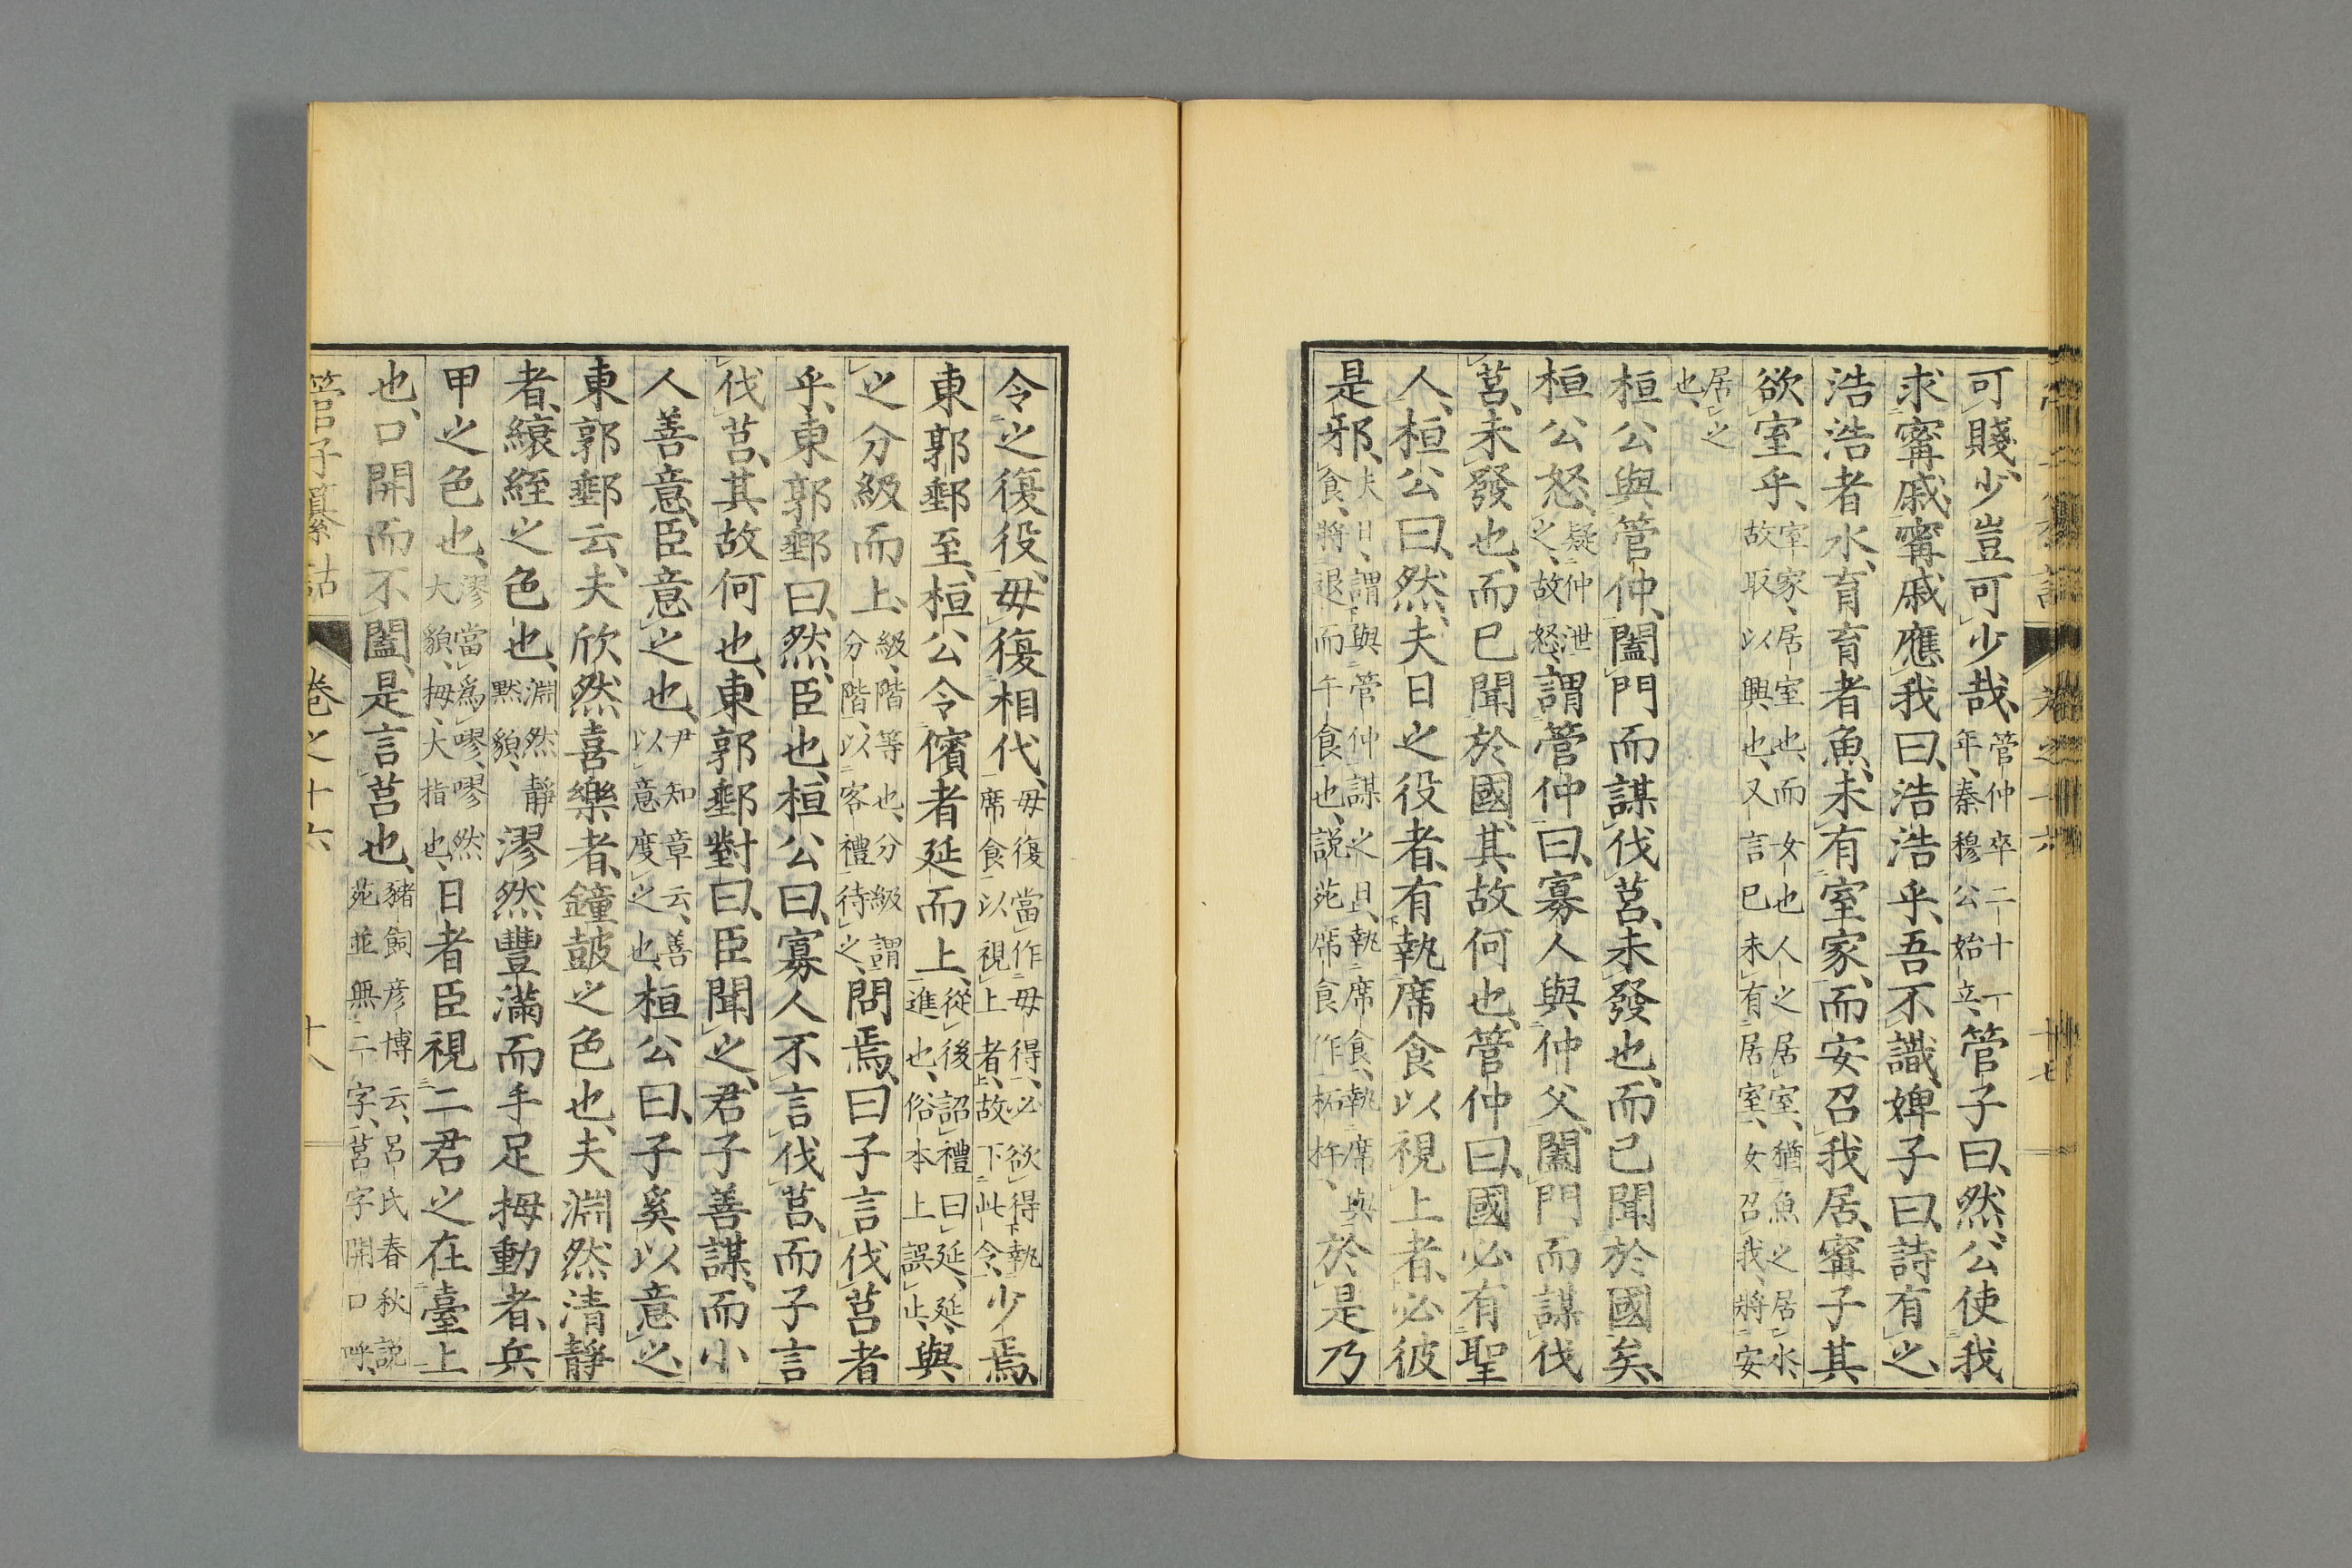 可賤、少豈可少哉、管仲卒二十一年、秦穆公始立、管子曰、然、公使我
求甯戚、甯戚應我曰、浩浩乎、吾不識、婢子曰、詩有之、
浩浩者水、育育者魚、未有室家、而安召我居、甯子其
欲室乎、室家、居室也、而女也人之居室、猶魚之居水、故取以興也、又言已未有居室、女召我、將安
居之也、
桓公與管仲、闔門而謀伐莒、未發也、而已聞於國矣、
桓公怒、疑仲泄之、故怒、謂管仲曰、寡人與仲父、闔門而謀伐
莒、未發也、而已聞於國、其故何也、管仲曰、國必有聖
人、桓公曰、然、夫日之役者、有執席食以視上者、必彼
是邪、夫日、謂與管仲謀之日、執席食、執席與食、將退而午食也、説苑席食作柘杵、於是乃
令之復役、毋復相代、毋復當作毋得、必欲得執席食以視上者、故下此令、少焉、
東郭郵至、桓公令儐者延而上、從後詔禮曰延、延、進也、俗本上誤止、與
之分級而上、級、階等也、分級謂分階、以客禮待之、問焉、曰子言伐莒者
乎、東郭郵曰、然、臣也、桓公曰、寡人不言伐莒、而子言
伐莒、其故何也、東郭郵對曰、臣聞之、君子善謀、而小
人善意、臣意之也、尹知章云、善以意度之也、桓公曰、子奚以意之、
東郭郵云、夫欣然喜樂者、鐘鼓之色也、夫淵然清靜
者、縗絰之色也、淵然靜默貌、漻然豐滿而手足拇動者、兵
甲之色也、漻當爲嘐、嘐然大貌、拇、大指也、日者臣視二君之在臺上
也、口開而不闔、是言莒也、豬飼彦博云、呂氏春秋説苑並無二字、莒字開口呼、
管子纂詁 卷之十六 十八